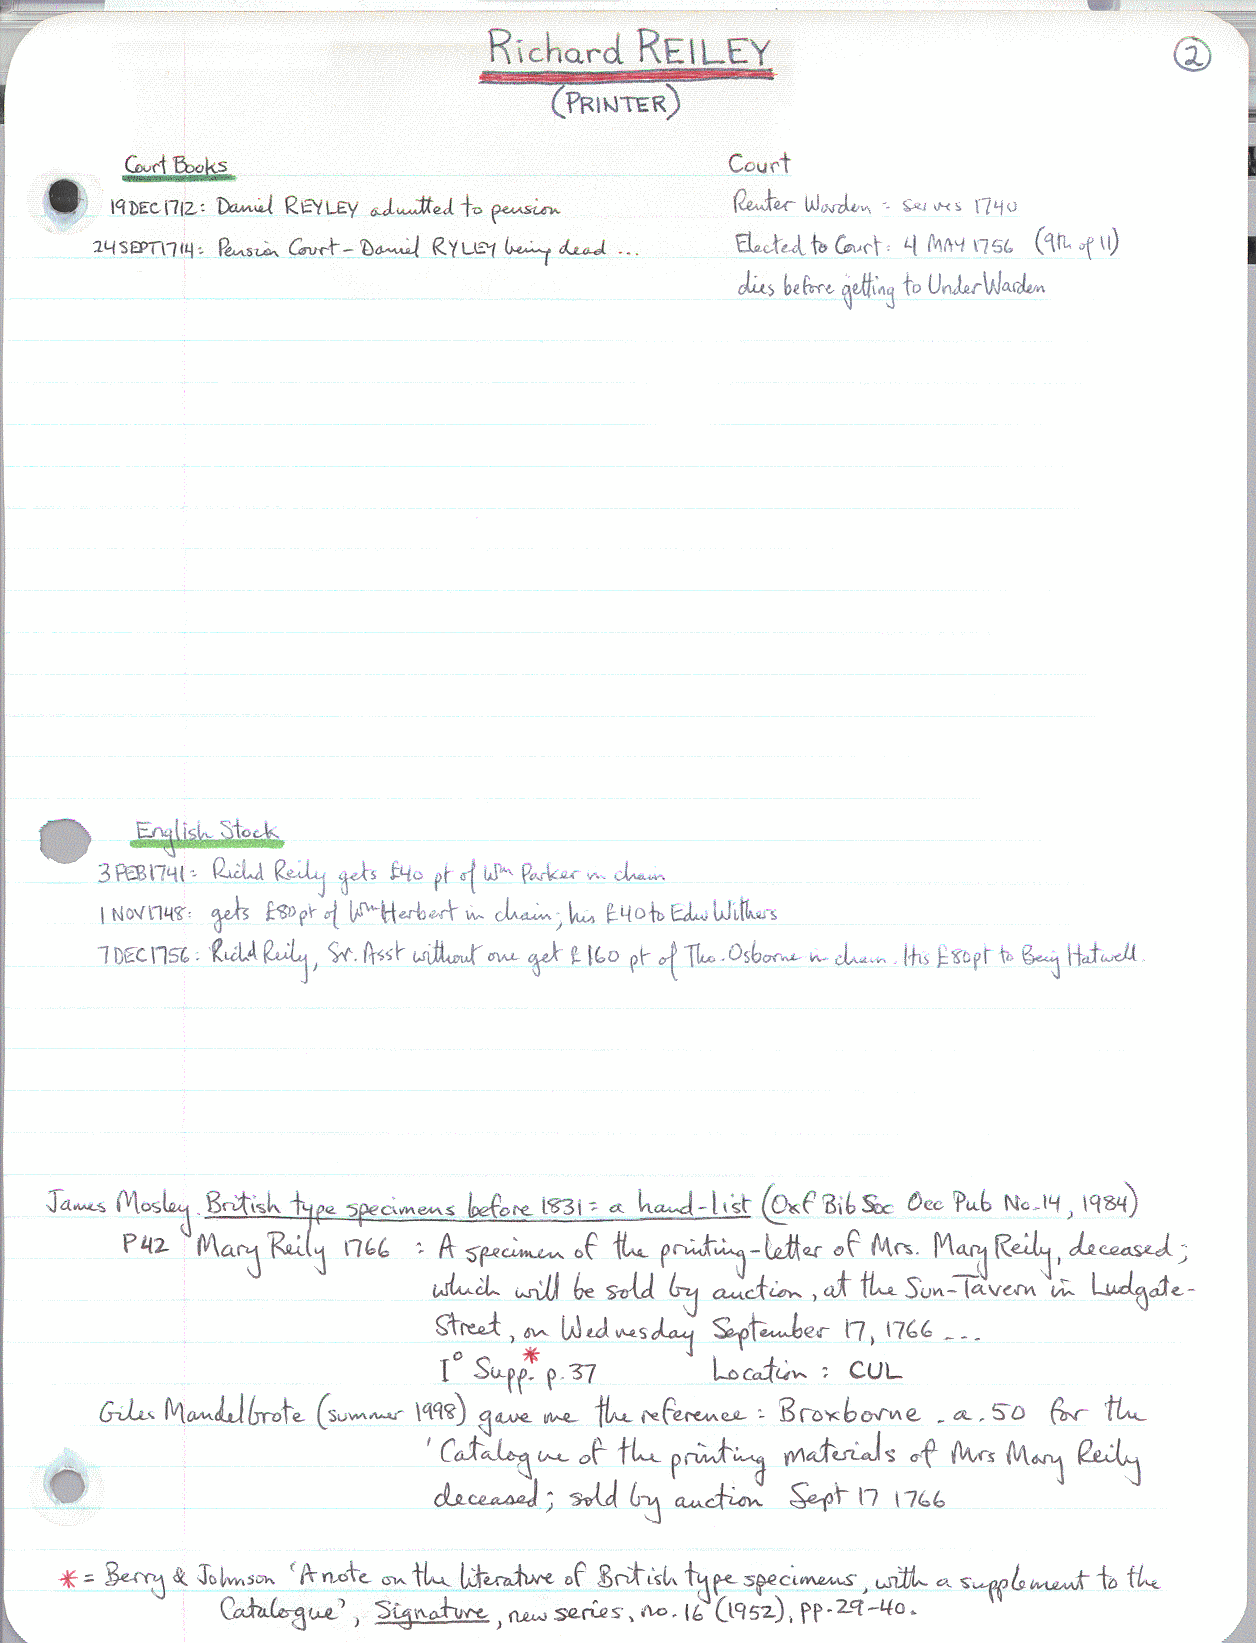 Richard REILEY
②
(PRINTER)
Court Books
19 DEC 1712: Daniel REYLEY admitted to pension
24 SEPT 1714: Pension Court - Daniel RYLEY being dead ...
Court
Renter Warden = serves 1740
Elected to Court: 4 MAY 1756 (9th of 11)
dies before getting to Under Warden
English Stock
3 FEB 1741: Richd Reily gets £40 pt of Wm Parker in chain
1 NOV 1748: gets £80 pt of Wm Herbert in chain; his £40 to Edw Withers
7 DEC 1756: Richd Reily, Sr. Asst without one get £160 pt of Tho. Osborne in chain. His £80 pt to Benj Hatwell.
James Mosley. British type specimens before 1831 = a hand-list (Oxf Bib Soc Occ Pub No. 14, 1984)
P42 Mary Reily 1766 : A specimen of the printing-letter of Mrs. Mary Reily, deceased;
which will be sold by auction, at the Sun-Tavern in Ludgate-
Street, on Wednesday September 17, 1766 ...
1° Supp.* p.37 Location : CUL
Giles Mandelbrote (summer 1998) gave me the reference : Broxborne . a . 50 for the
'Catalogue of the printing materials of Mrs Mary Reily
deceased; sold by auction Sept 17 1766
* = Berry & Johnson 'A note on the literature of British type specimens, with a supplement to the
Catalogue', Signature, new series, no. 16 (1952), pp. 29-40.